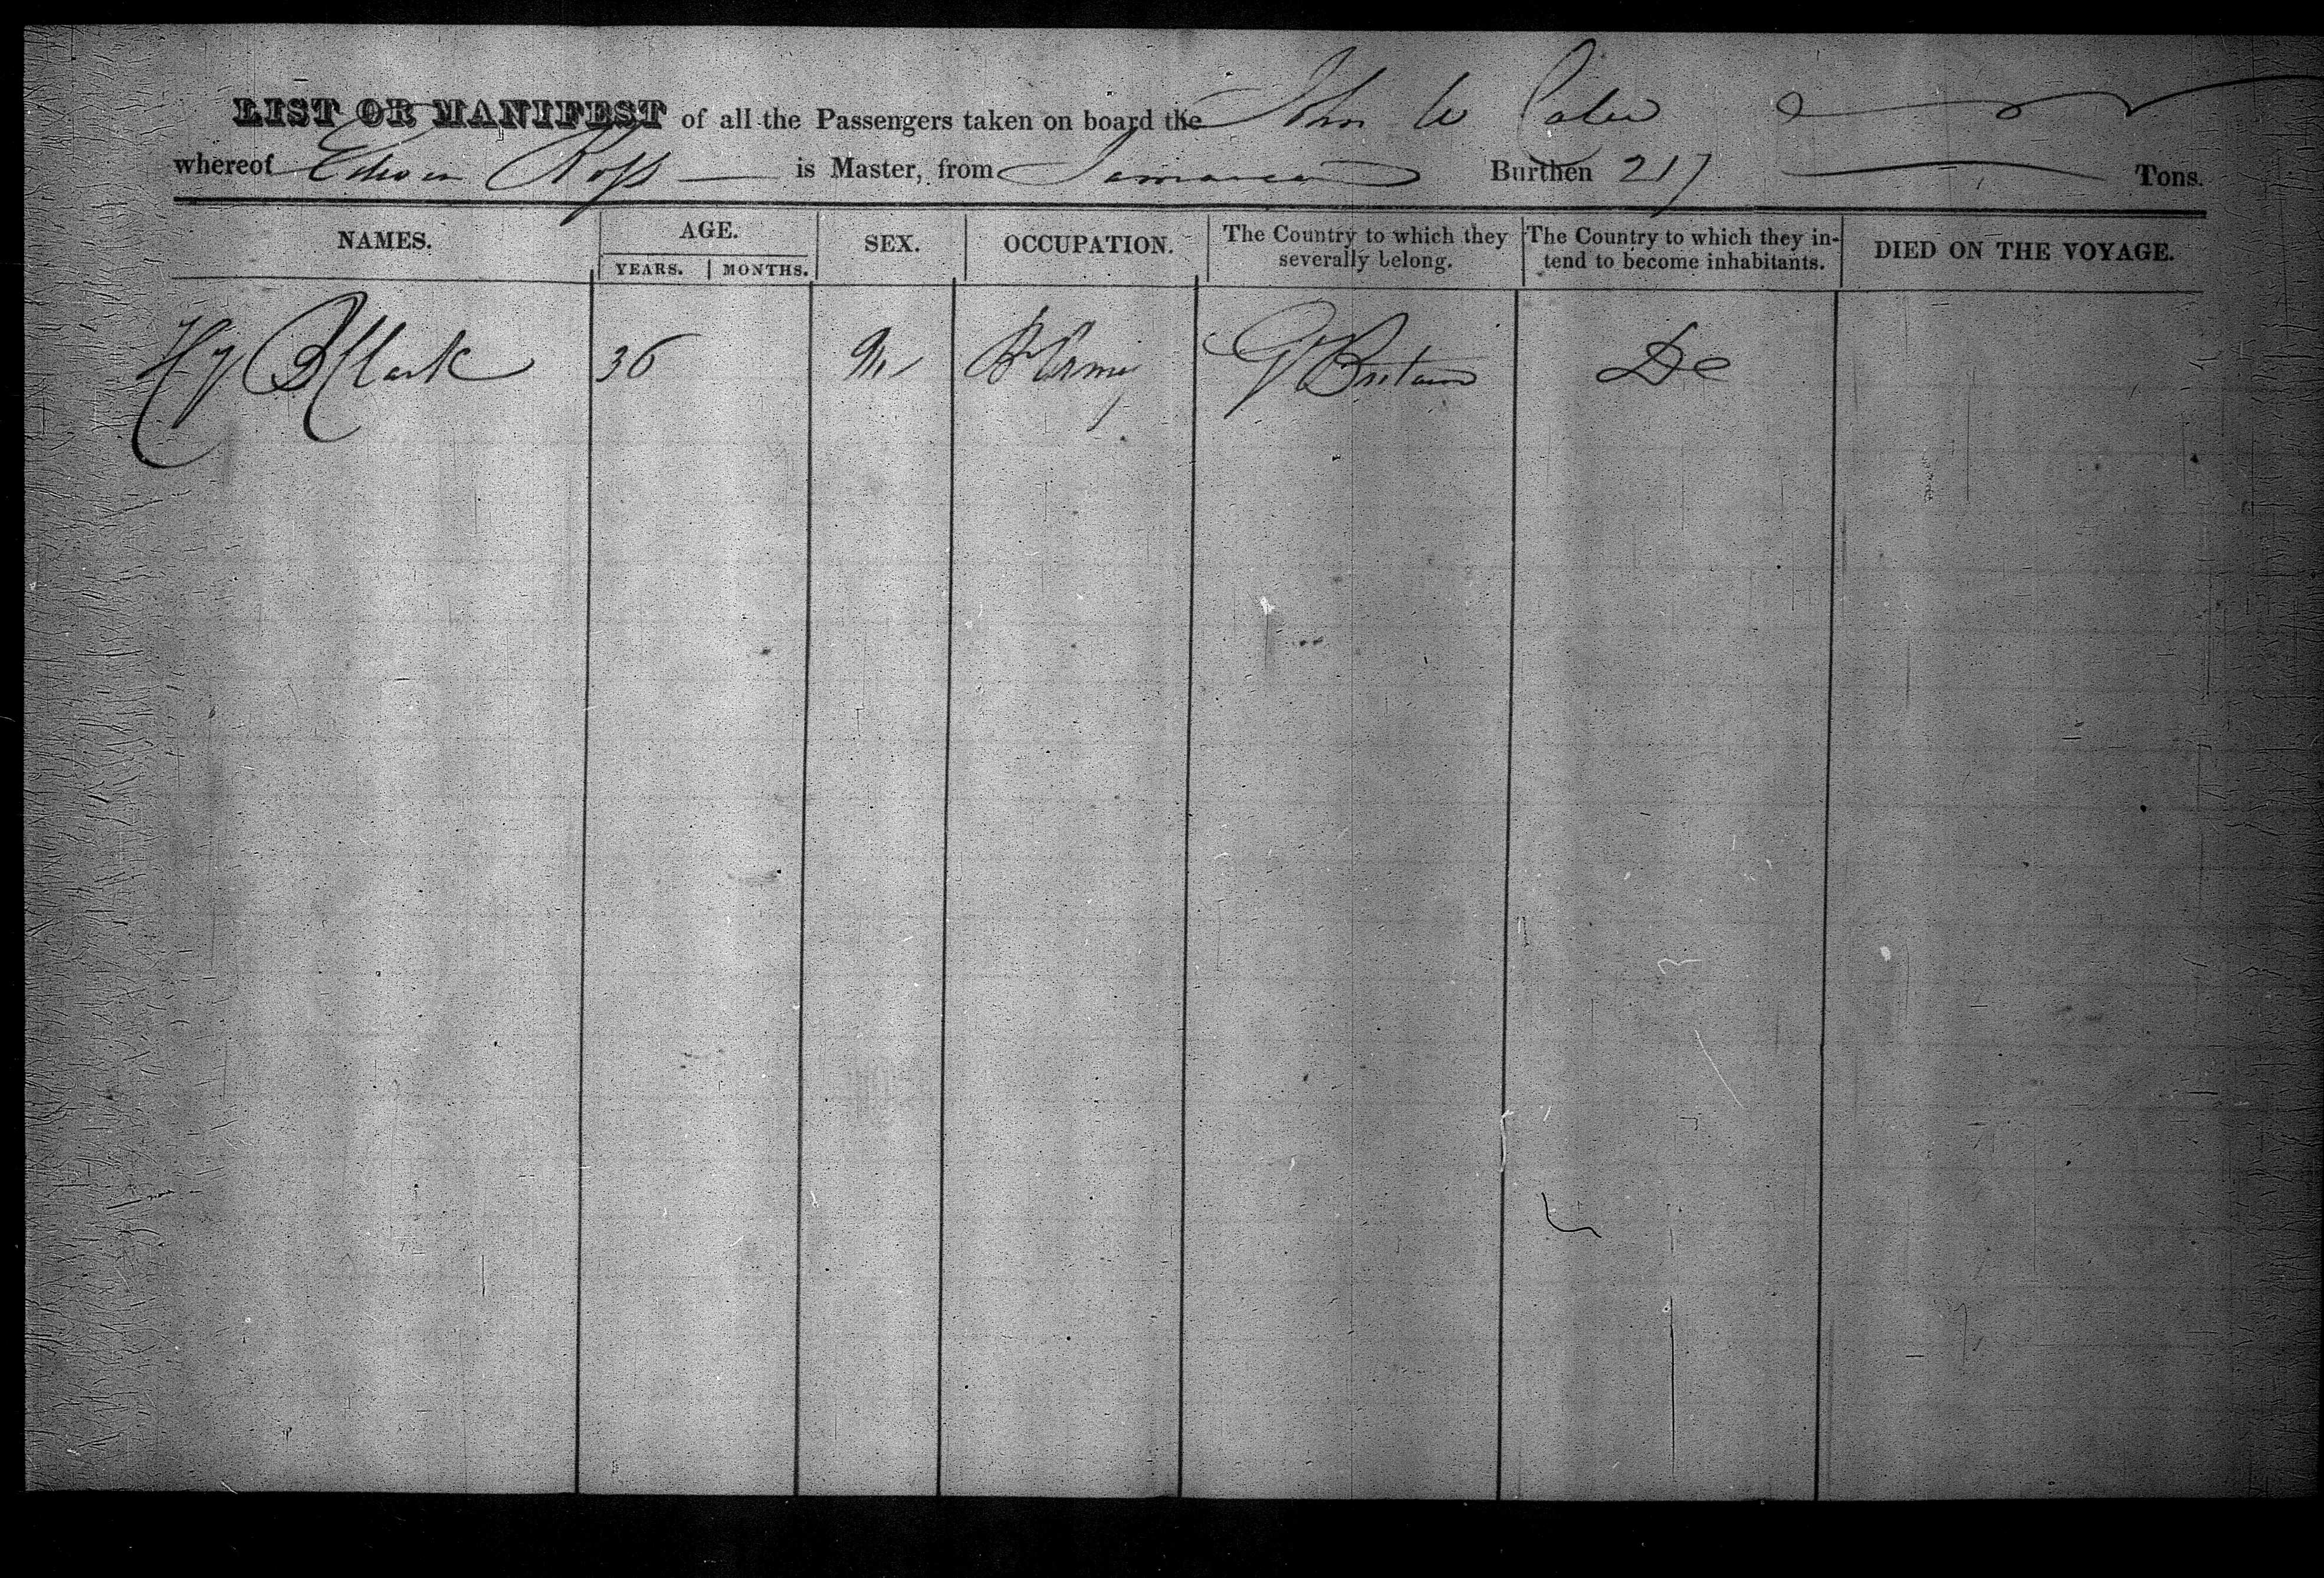 LIST OR MANIFEST of all the Passengers taken on board the John W
whereof Edwin Ross is Master, from Jamaica Burthen 217 Tons.
NAMES. AGE. SEX. OCCUPATION. The Country to which they severally belong. The Country to which they intend to become inhabitants. DIED ON THE VOYAGE.
YEARS. MONTHS.
Hy B Clark 36 M Br Army Gt Britain Do